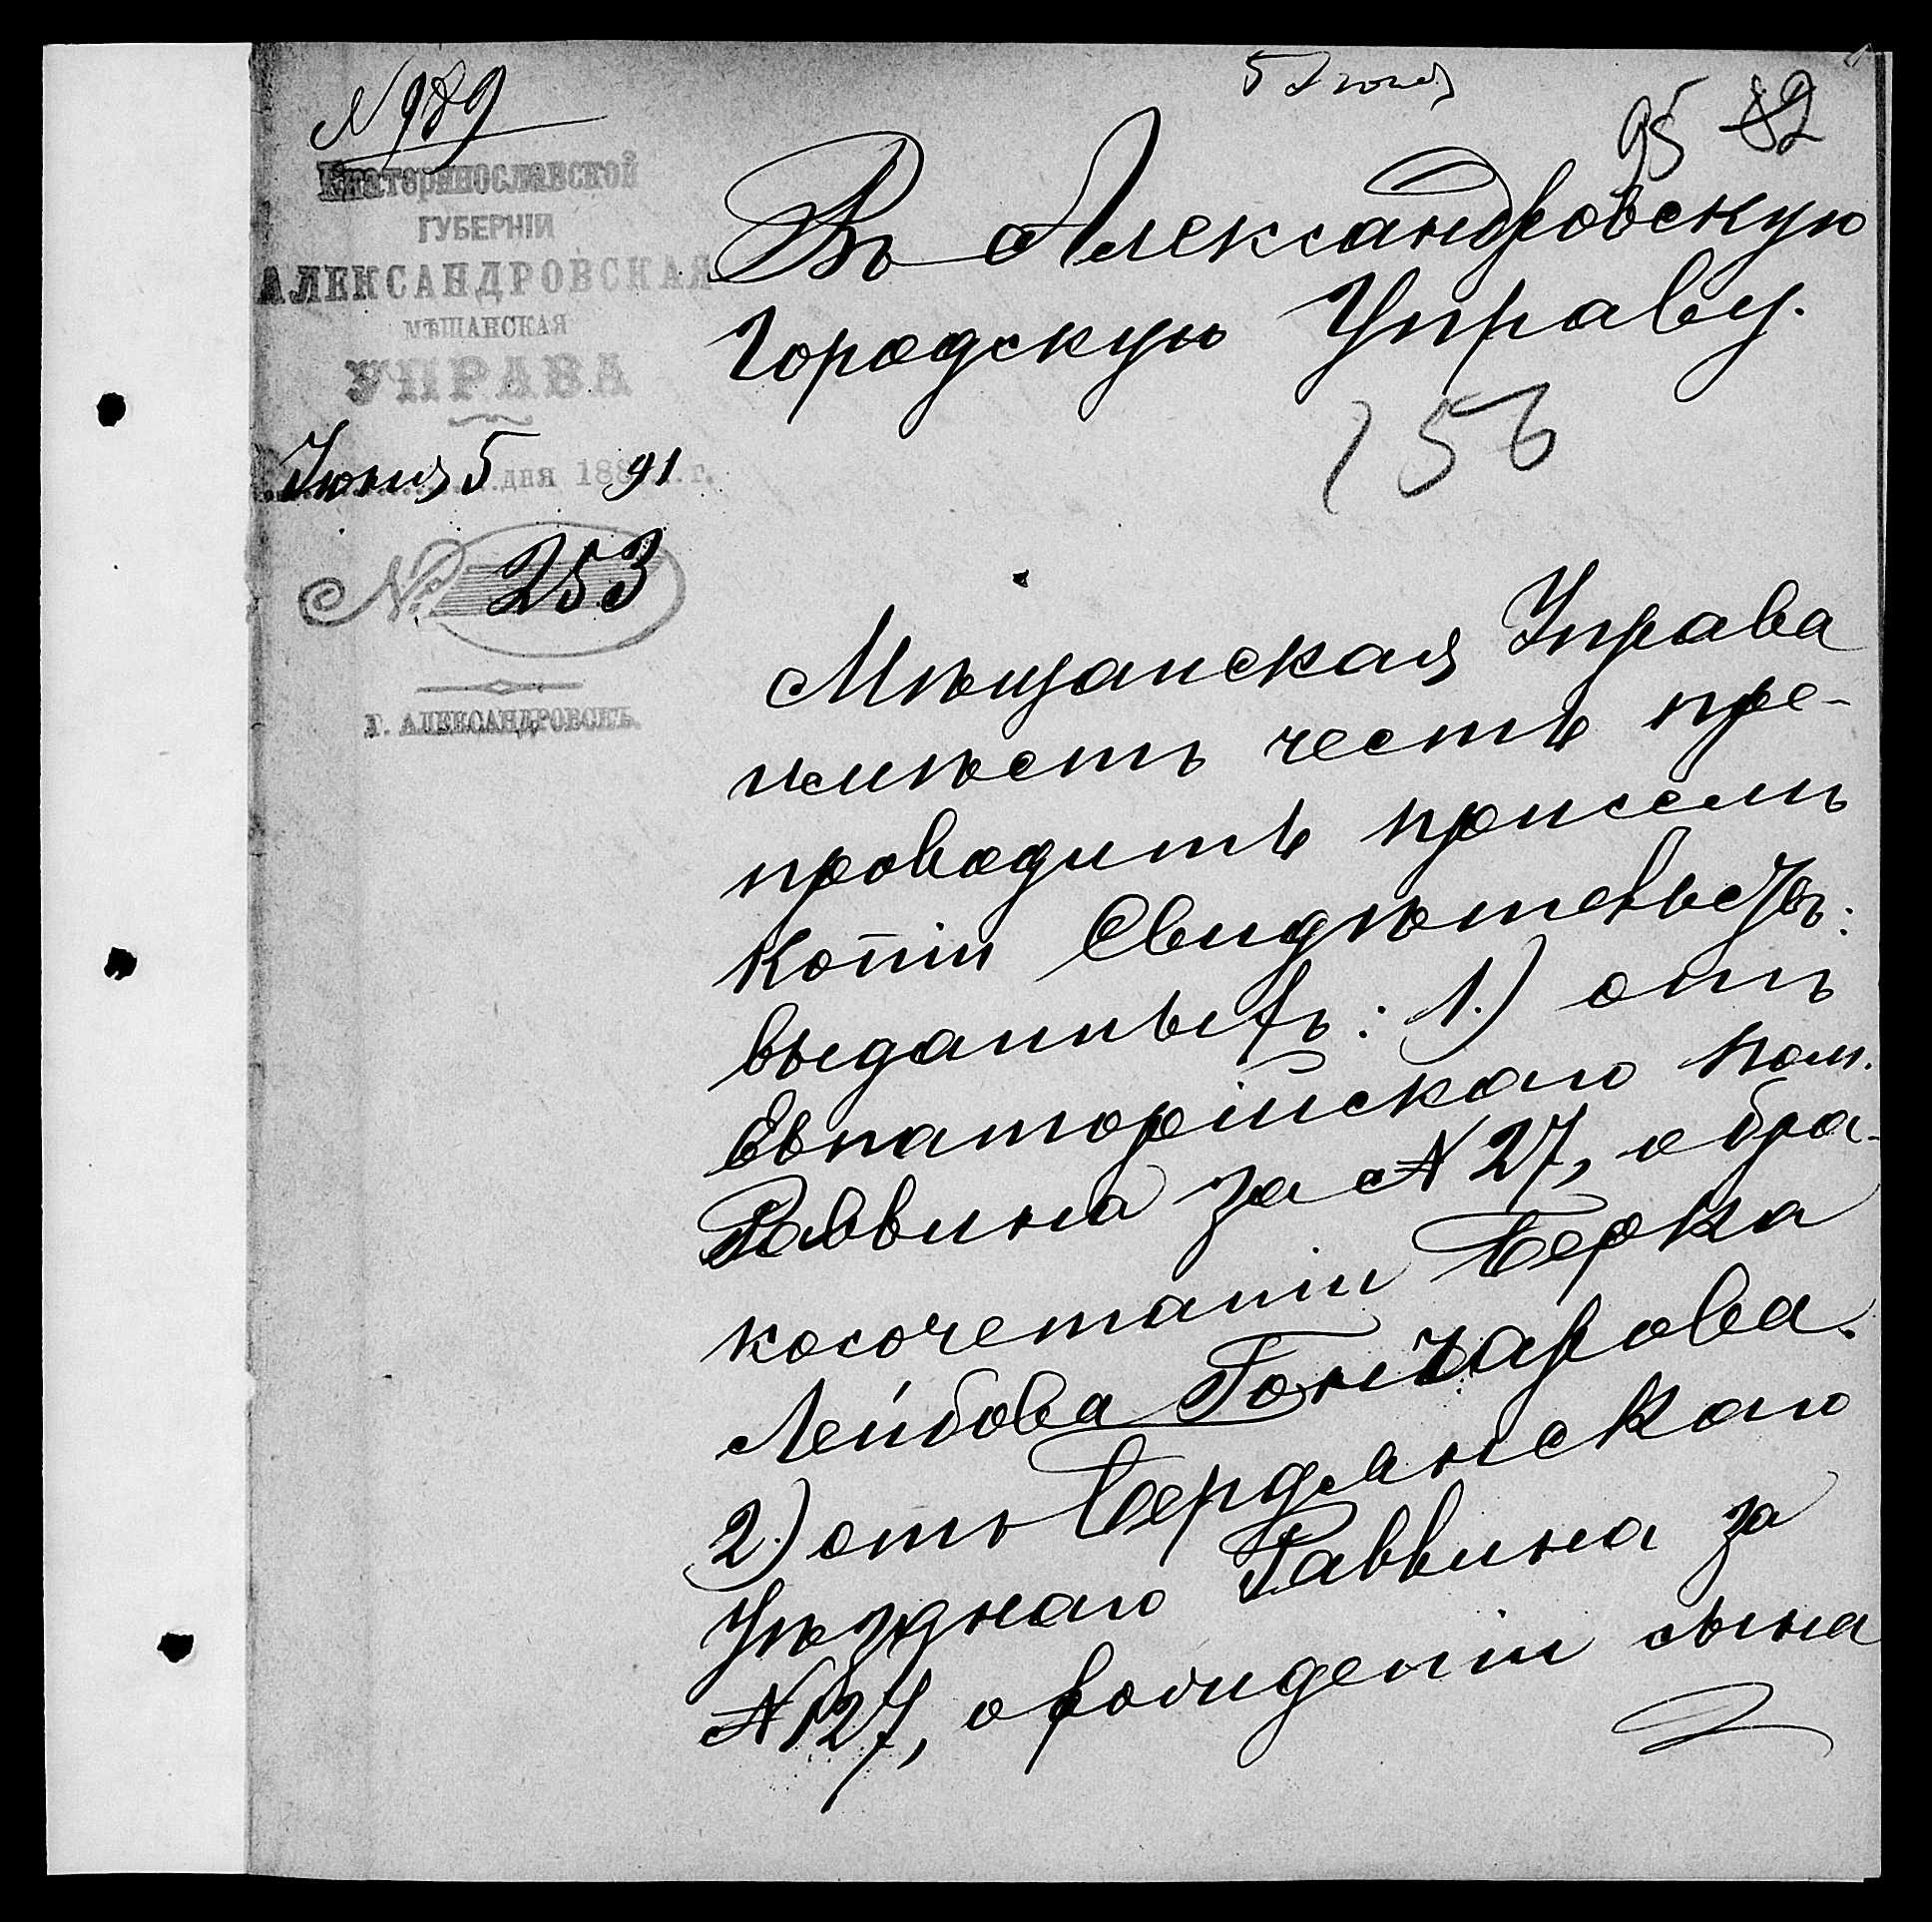 5 Июня
N 989
95 82
Екатеринославской
ГУБЕРНІИ
АЛЕКСАНДРОВСКАЯ
МѢЩАНСКАЯ
УПРАВА
Июня 5 дня 188 91 г.
№ 253
Г. АЛЕКСАНДРОВСКЪ.
Въ Александровскую
Городскую Управу.
256
Мѣщанская Управа
имѣетъ честь пре-
проводить при семъ
копіи Свидѣтельствъ:
выданныхъ: 1.) отъ
Евпаторійскаго пом.
Раввина за N 27, о бра-
косочетаніи Берка
Лейбова Гончарова.
2.) отъ Бердянскаго
Уѣзднаго Раввина за
N 127, о рожденіи сына